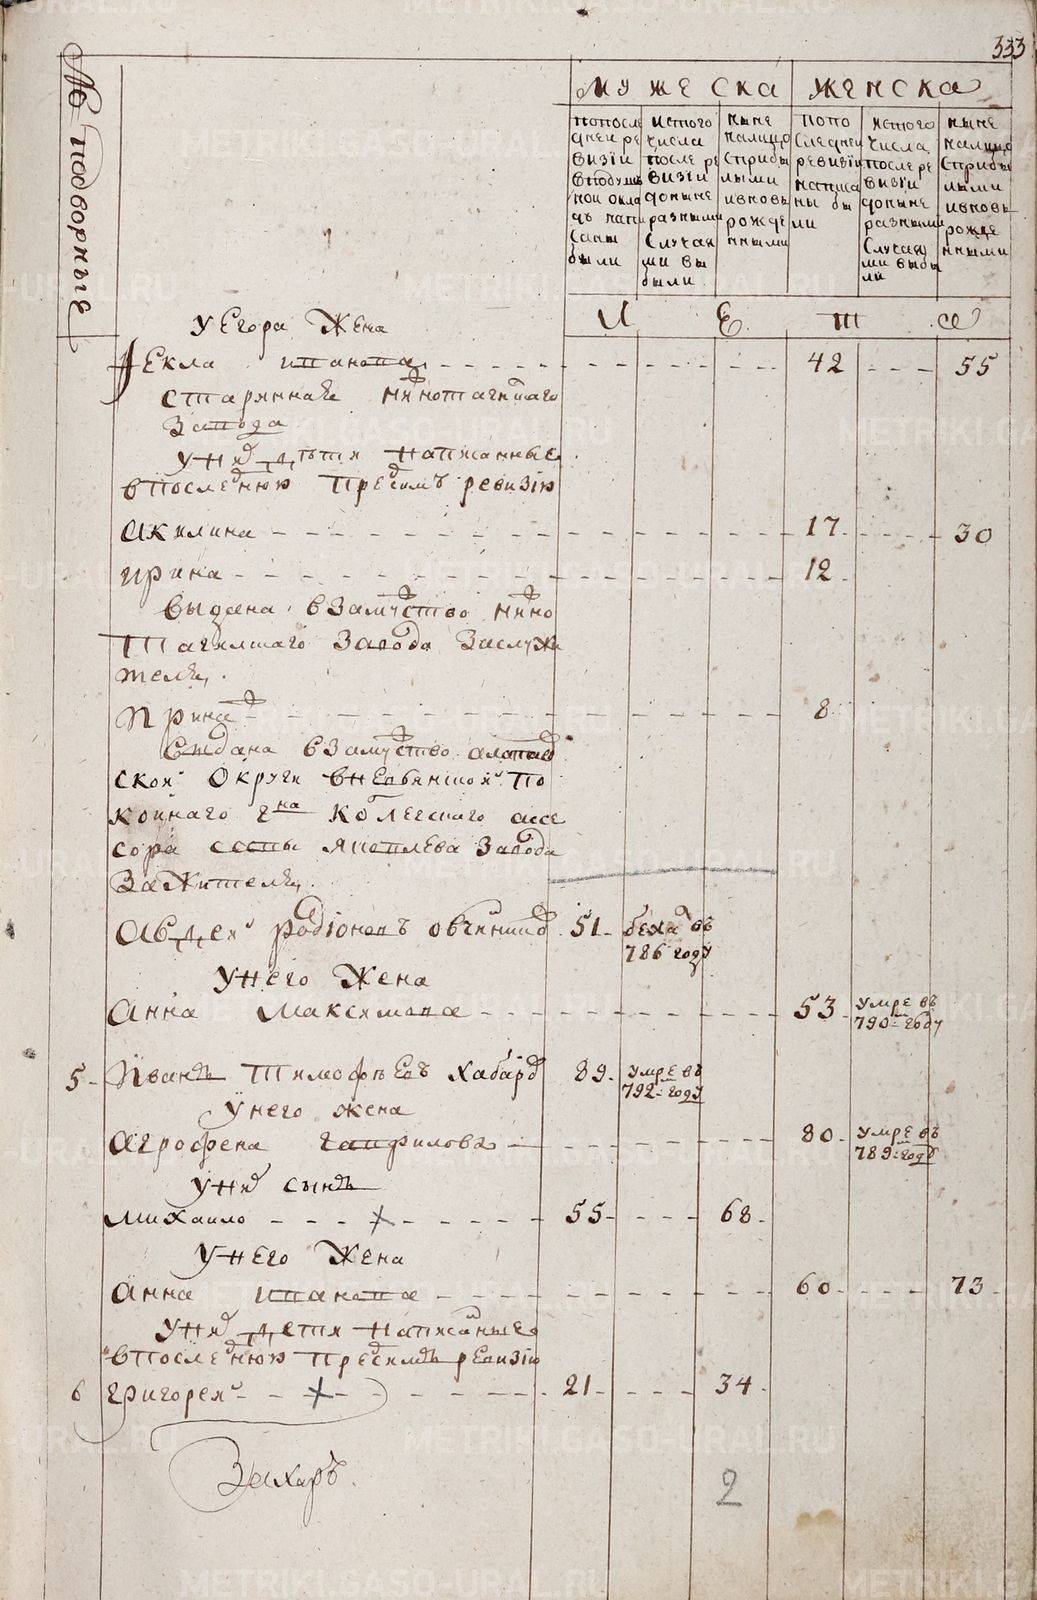 333
№ подворные
мужеска
женска
попосле
дней ре
визіи
вподуш
ной окла
дъ напи
саны
были
изтого
числа
после ре
визіи
доныне
разными
случая
ми вы
были
ныне
налицо
сприбы
лыми
ивновь
рожде
нными
попо
следней
ревизіи
написа
ны бы
ли
изтого
числа
после ре
визіи
доныне
разными
случая
ми выбы
ли
ныне
налицо
сприбы
лыми
ивновь
рожде
нными
Л Е т а
у Егора Жена
Фекла иванова 42 55
стариннаго нижнотагильскаго
завода
унихъ дѣти написанные
впоследнюю предсимъ ревизію
Акилина 17 30
ирина 12
выдана взамужство нижно
тагилскаго завода заслужи
теля
Ирина 8
выдана взамужство алапаев
ской округи вневьянской по
койнаго гна колежскаго ассе
сора саввы яковлева завода
зажителя
Авдей родіоновъ овчинниковъ 51 бежалъ въ
786 году
унего Жена
Анна Максимова 53 умре въ
790м году
5 Иванъ Тимофѣевъ хабаровъ 89 умре въ
792м году
унего жена
Агрофена панфилова 80 умре въ
789м году
унихъ сынъ
михаило 55 68
унего Жена
Анна иванова 60 73
унихъ дети написанные
впоследнюю предсимъ ревизію
6 григорей 21 34
Захаръ
2